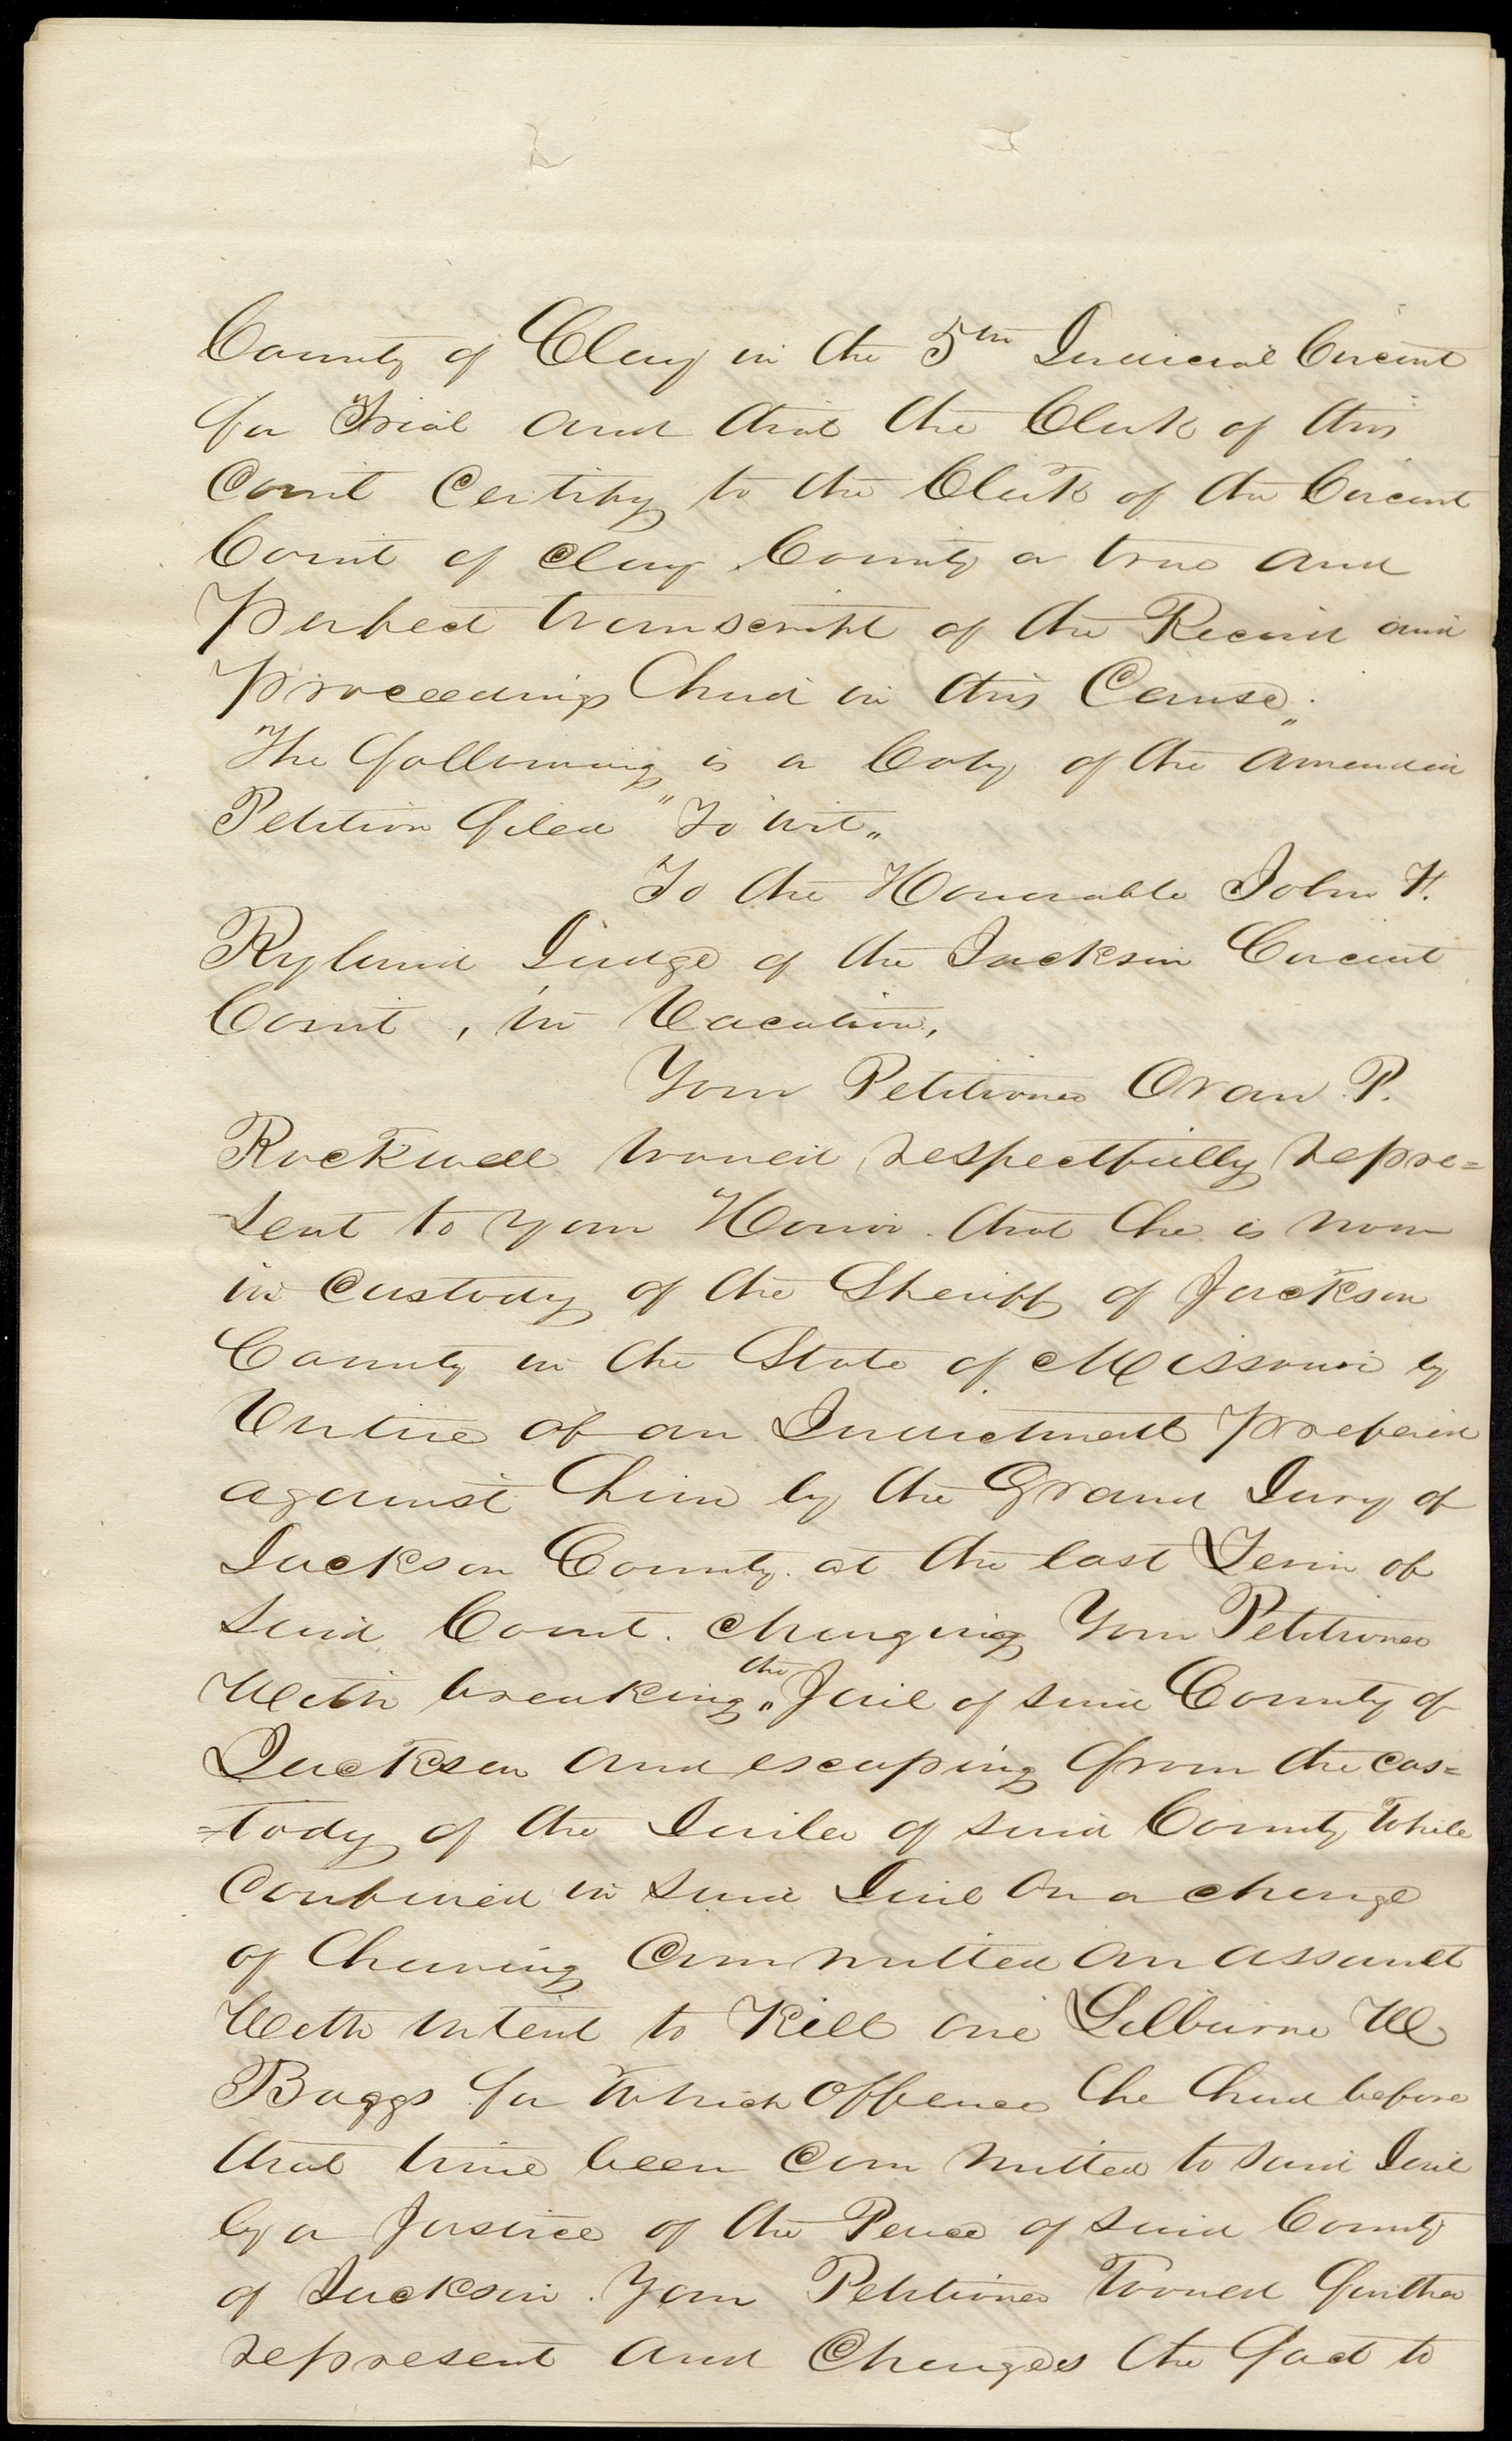 County of Clay in the 5th Judicial Circuit
for Trial and that the Clerk of this
Court Certify to the Clerk of the Circuit
Court of Clay County a true and
Perfect transcript of the Record and
Proceedings had in this Cause„.
The following is a Copy of the amended
Petition filed "To wit„
To the Honorable John F.
Ryland Judge of the Jackson Circuit
Court , in Vacation,
Your Petitioner Oran P.
Rockwell would respectfully repre=
-sent to your Honor. that he is now
in Custody of the Sheriff of Jackson
County in the State of Missouri by
Virtue of an Indictment Prefered
against him by the Grand Jury of
Jackson County. at the last Term of
said Court. Charging Your Petitioner
With breaking the Jail of said County of
Jackson and escaping from the cus=
=tody of the Jailer of said County While
Confined in said Jail on a charge
of having Committed an assault
With intent to Kill one Lilburne W
Boggs for Which offence he had before
that time been Committed to said Jail
by a Justice of the Peace of said County
of Jackson. Your Petitioner Would further
represent and Charges the fact to